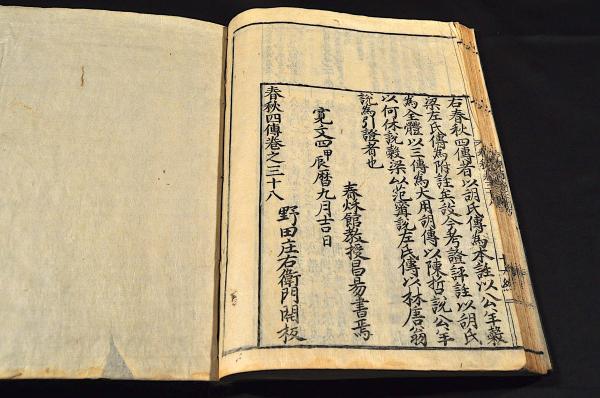 右春秋四傳者以胡氏傳為本註以公羊穀
梁左氏傳為附註矣故今考證評註以胡氏
為全體以三傳為大用胡傳以陳哲說公羊
以何休說穀梁以范甯說左氏傳以林唐翁
說為引證者也
寛文四甲辰曆九月吉日
春秌館教授昌易書焉
春秋四傳卷之三十八
野田庄右衛門開板